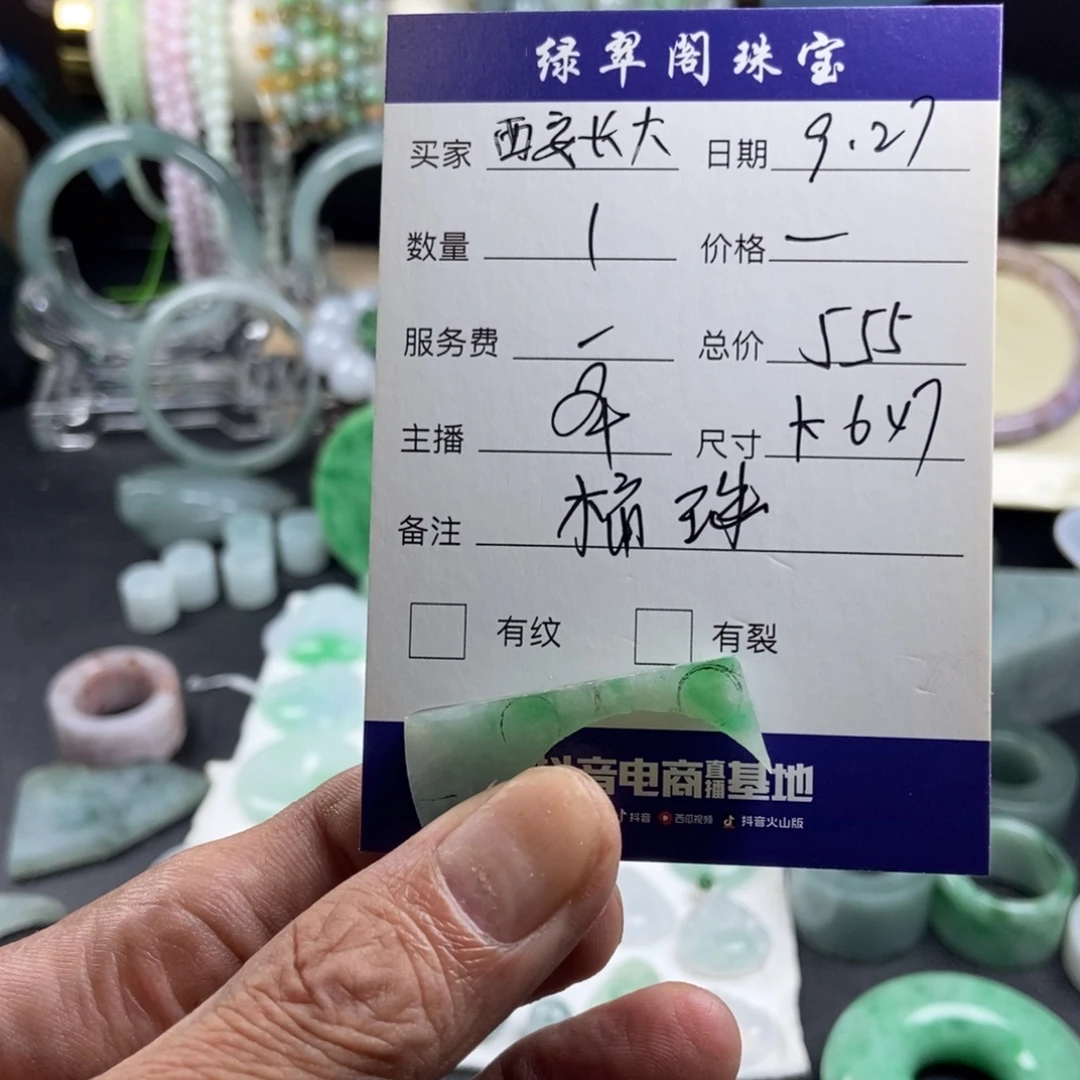 绿翠阁珠宝
买家 西安长大 日期 9.27
数量 1 价格 一
服务费 一 总价 555
主播 尺寸 大647
备注 珠
有纹 有裂
抖音电商直播基地
抖音 西瓜视频 抖音火山版